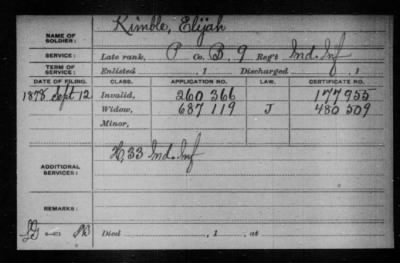 Kimble, Elijah
NAME OF SOLDIER:
SERVICE: Late rank, P Co. B, 9 Reg't Ind. Inf
TERM OF SERVICE: Enlisted , 1 Discharged , 1
DATE OF FILING. CLASS. APPLICATION NO. LAW. CERTIFICATE NO.
1878 Sept 12 Invalid, 260 366 177955
Widow, 687 119 J 480 509
Minor,
ADDITIONAL SERVICES: H, 33 Ind. Inf
REMARKS:
Died , 1 , at